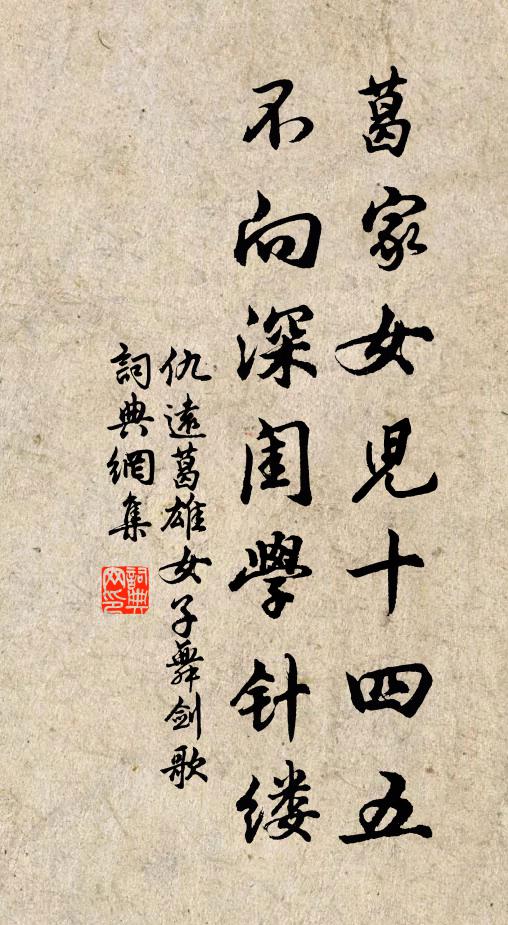 葛家女児十四五
不向深闺學针缕
仇遠葛雄女子舞剑歌
詞典網集
詞典网印